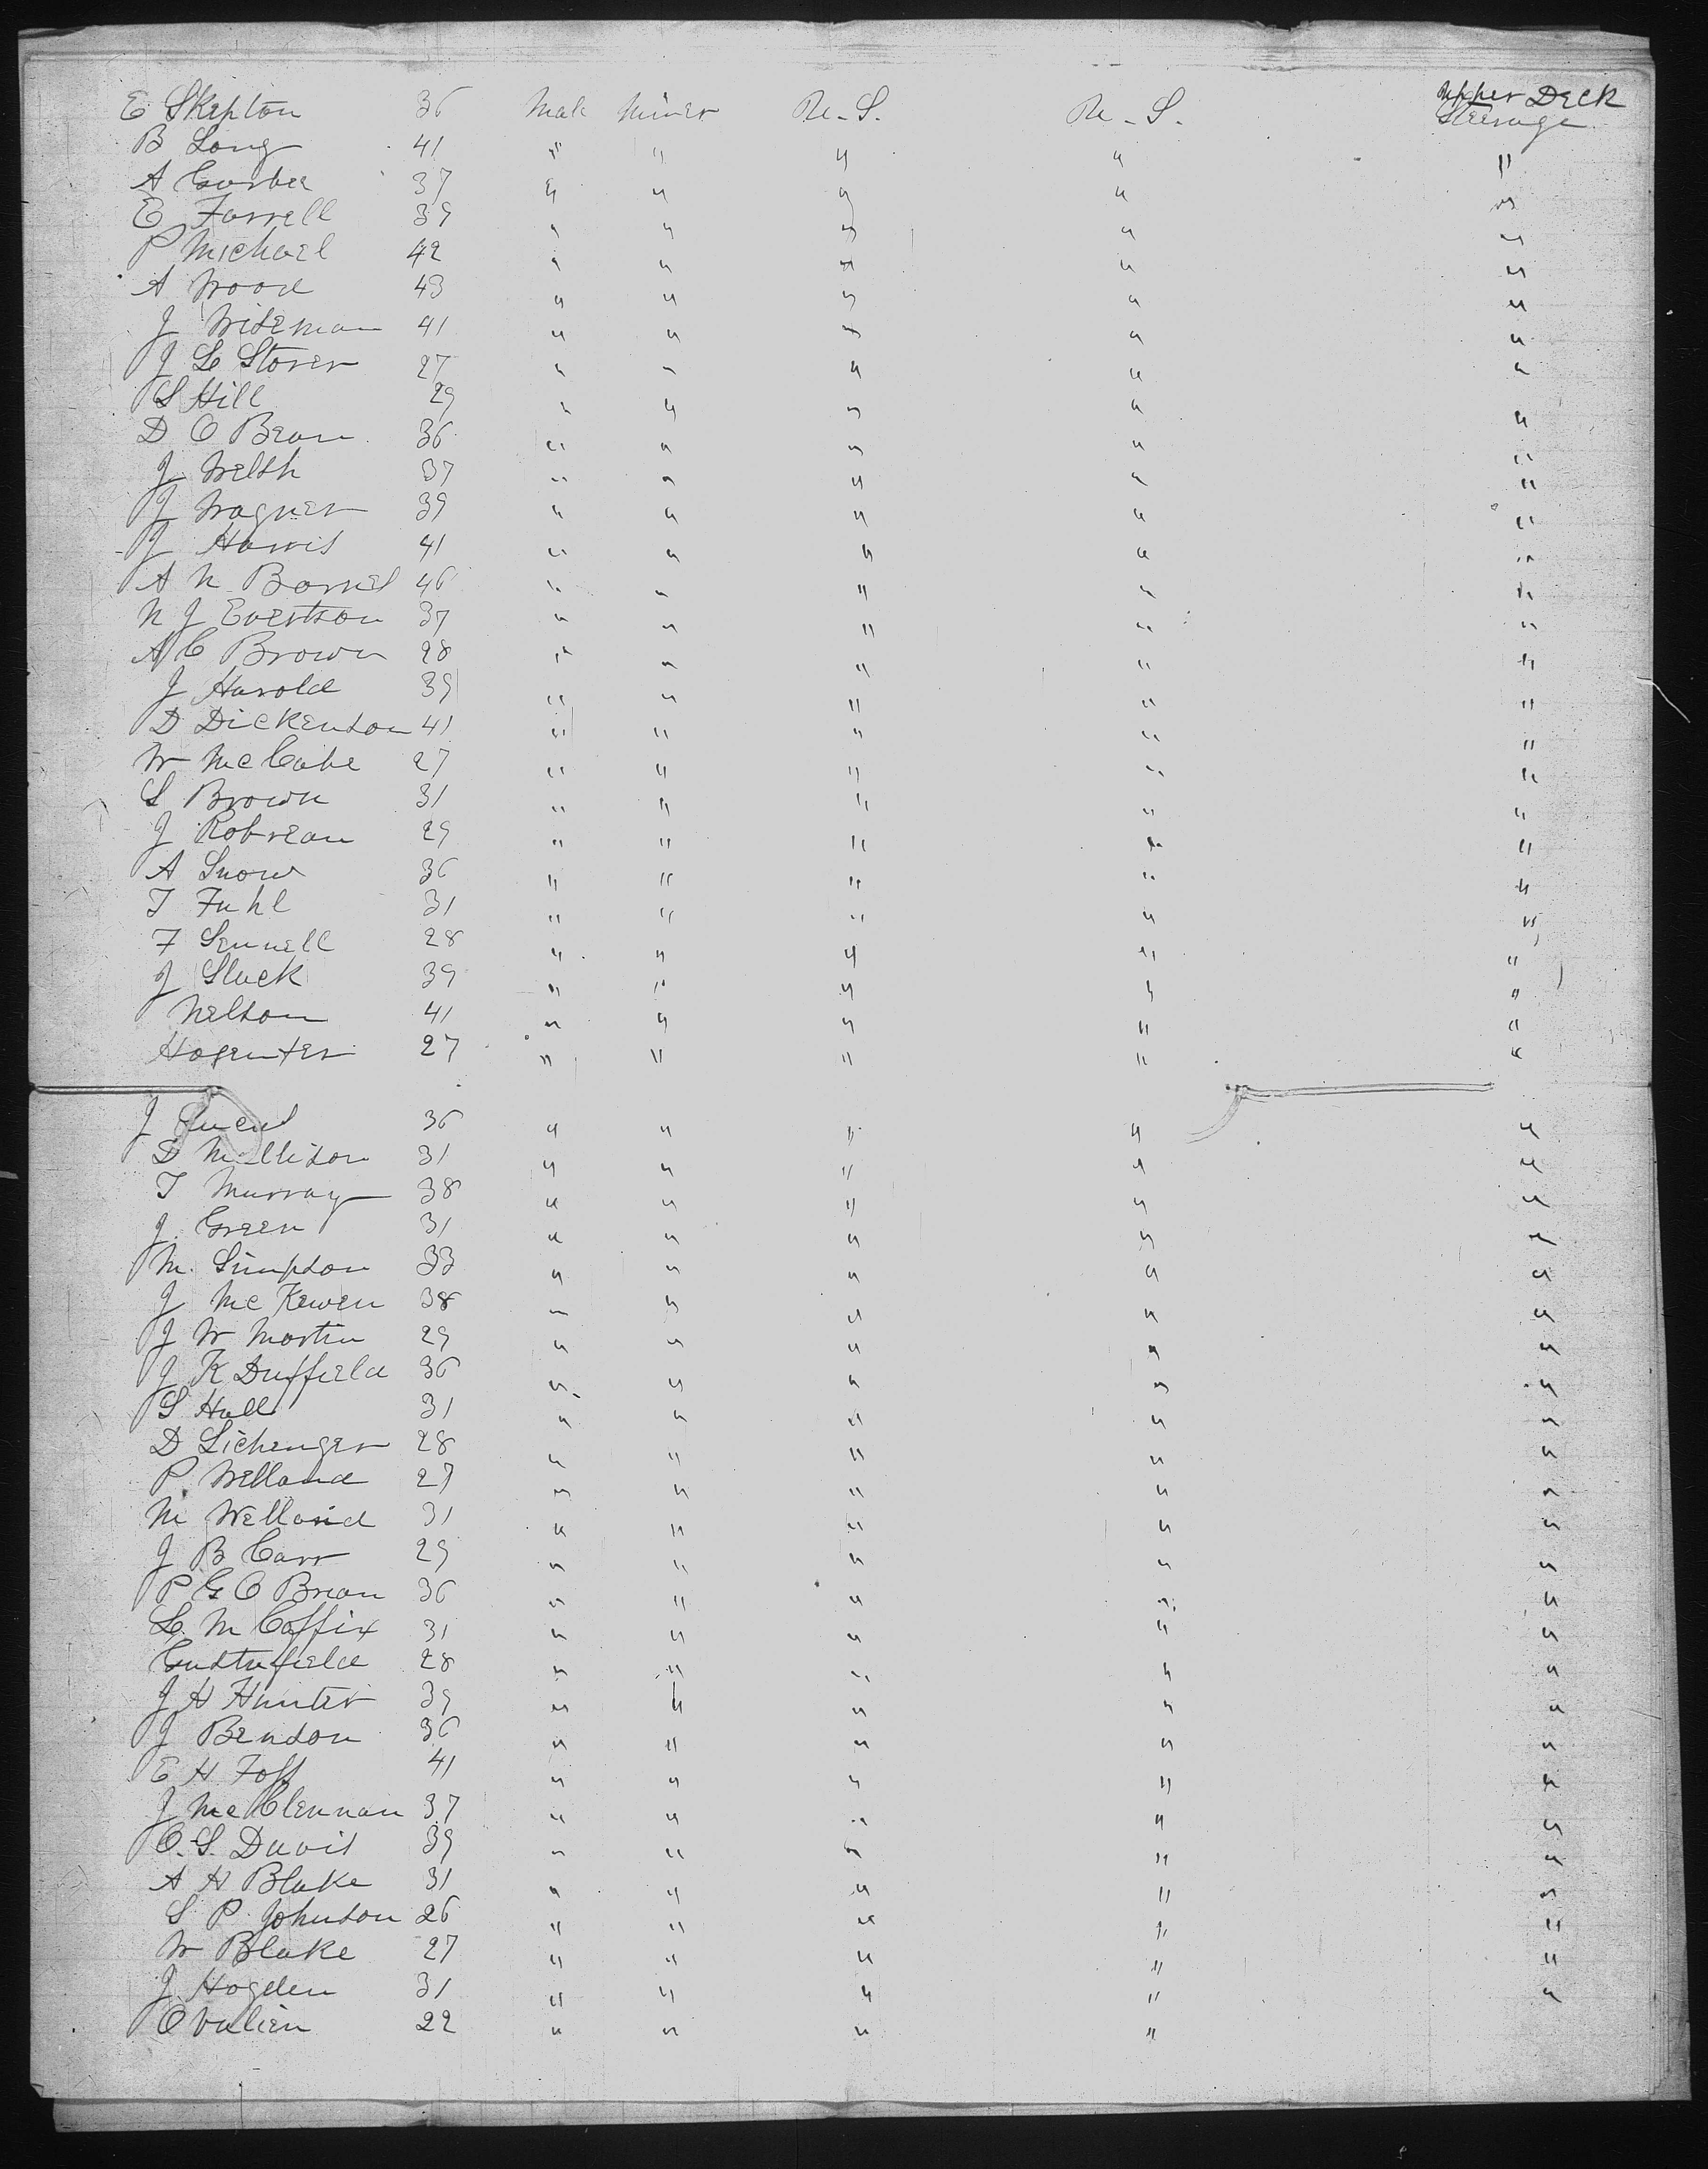 Upper Deck
E Skepton 36 Male Miner Re-S. Re-S. Steerage
B Long 41 " " " " "
A 37 " " " " "
E Farrell 39 " " " " "
P Michael 42 " " " " "
A Wood 43 " " " " "
J Wiseman 41 " " " " "
J L Stover 27 " " " " "
S Hill 29 " " " " "
D O Bean 36 " " " " "
J Welsh 37 " " " " "
J Wagner 39 " " " " "
J Harris 41 " " " " "
A N 46 " " " " "
N J Evertson 37 " " " " "
A C Brown 28 " " " " "
J Harold 39 " " " " "
D Dickenson 41 " " " " "
W McCabe 27 " " " " "
S Brown 31 " " " " "
J Robrean 29 " " " " "
A Snow 36 " " " " "
T Fuhl 31 " " " " "
F Sennell 28 " " " " "
J Slack 39 " " " " "
Nelson 41 " " " " "
Hogenter 27 " " " " "
J 36 " " " " "
D Mollison 31 " " " " "
T Murray 38 " " " " "
J. Green 31 " " " " "
M. Simpson 33 " " " " "
J McKewen 38 " " " " "
J W Martin 29 " " " " "
J K Duffield 36 " " " " "
S Hall 31 " " " " "
D Lichenger 28 " " " " "
P. Welland 27 " " " " "
M Welland 31 " " " " "
J B Carr 29 " " " " "
P G O Brian 36 " " " " "
L. M Coffix 31 " " " " "
28 " " " " "
J H Hunter 39 " " " " "
J Benson 36 " " " " "
E H 41 " " " " "
J McClennan 37 " " " " "
C. S. Davis 39 " " " " "
A H Blake 31 " " " " "
S P Johnson 26 " " " " "
W Blake 27 " " " " "
J Hogden 31 " " " " "
22 " " " "